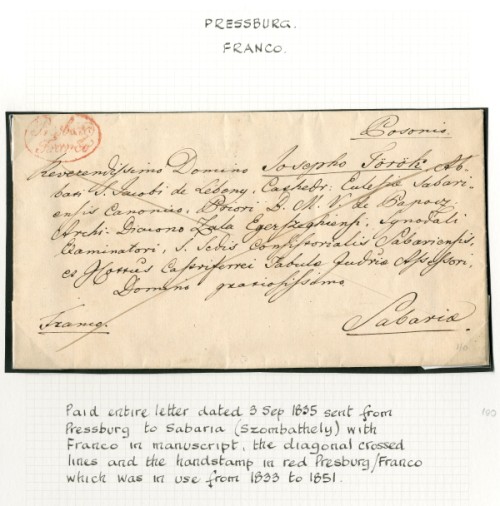 PRESSBURG.
FRANCO.
Presburg
Franco
Posonio.
Reverendissimo Domino Josepho Török Ab-
bati S. Jacobi de Lébény, Cathedr. Eccles. Sabari-
ensis Canonico, Priori B. M. V. de Papocz,
Archi-Diacono Zala Egerszeghiensi, Synodali
Examinatori, S. Sedis Consistorialis Sabariensis,
Comitatus Castriferrei Tabulæ Judriæ Assessori,
Domino gratiosissimo
Franco.
Sabariæ.
Paid entire letter dated 3 Sep 1835 sent from
Pressburg to Sabaria (Szombathely) with
Franco in manuscript, the diagonal crossed
lines and the handstamp in red Presburg/Franco
which was in use from 1833 to 1851.